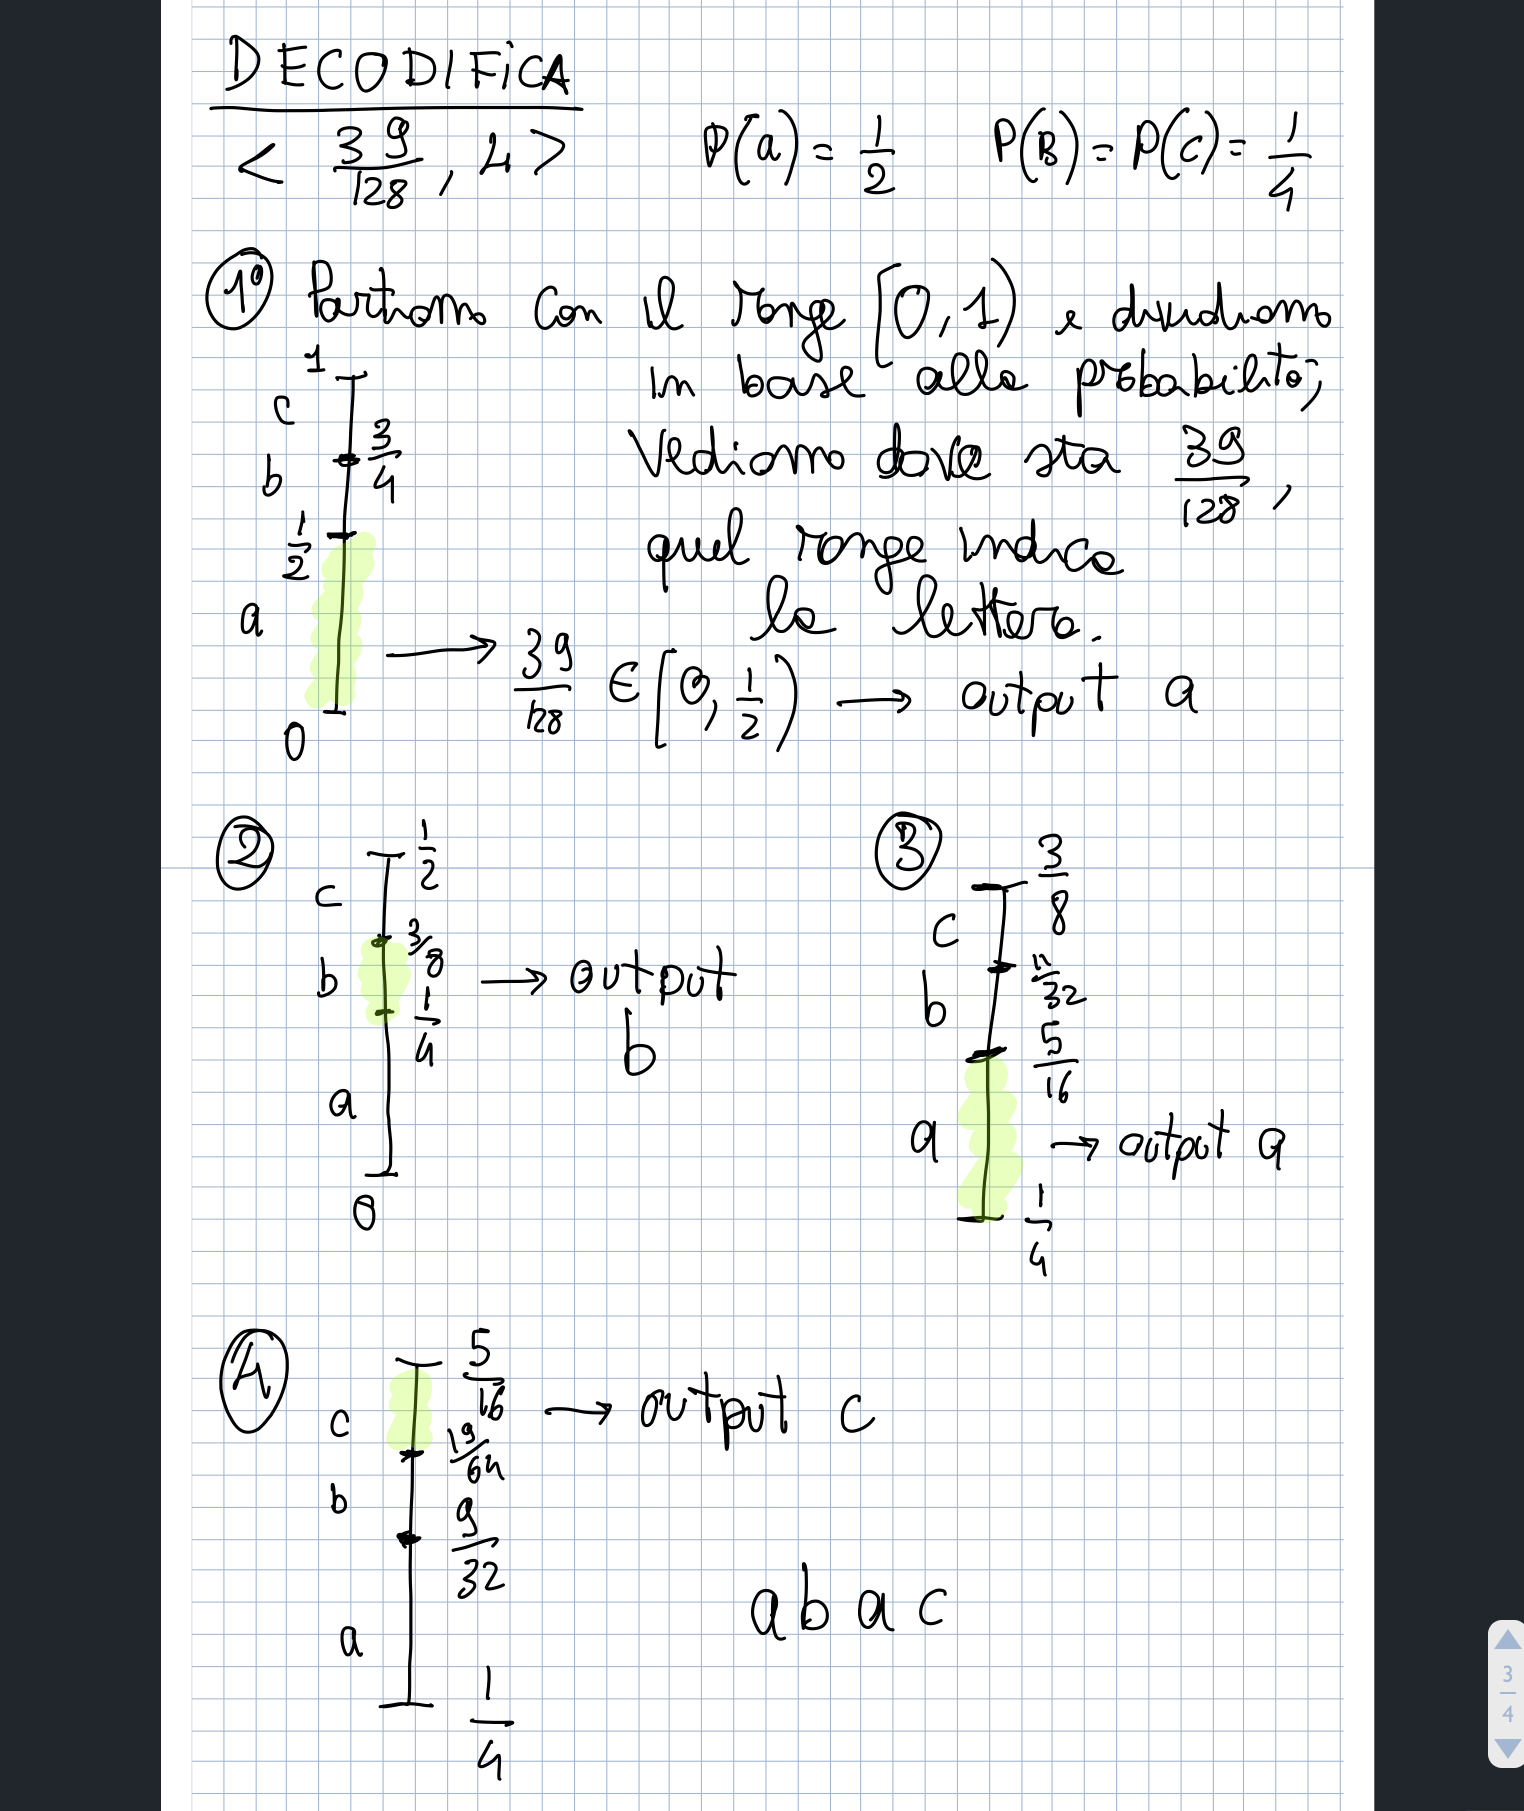 DECODIFICA
< 39/128, 4 > P(a) = 1/2 P(B) = P(c) = 1/4
1° Partiamo con il range [0, 1) e dividiamo
in base alla probabilità;
vediamo dove sta 39/128,
quel range indica
la lettera.
1
c
3/4
b
1/2
a
→ 39/128 ∈ [0, 1/2) → output a
0
2
1/2
c
3/8
b → output
b
1/4
a
0
3
3/8
c
11/32
b
5/16
a → output a
1/4
4
5/16
c → output c
19/64
b
9/32
a
1/4
a b a c
3
4